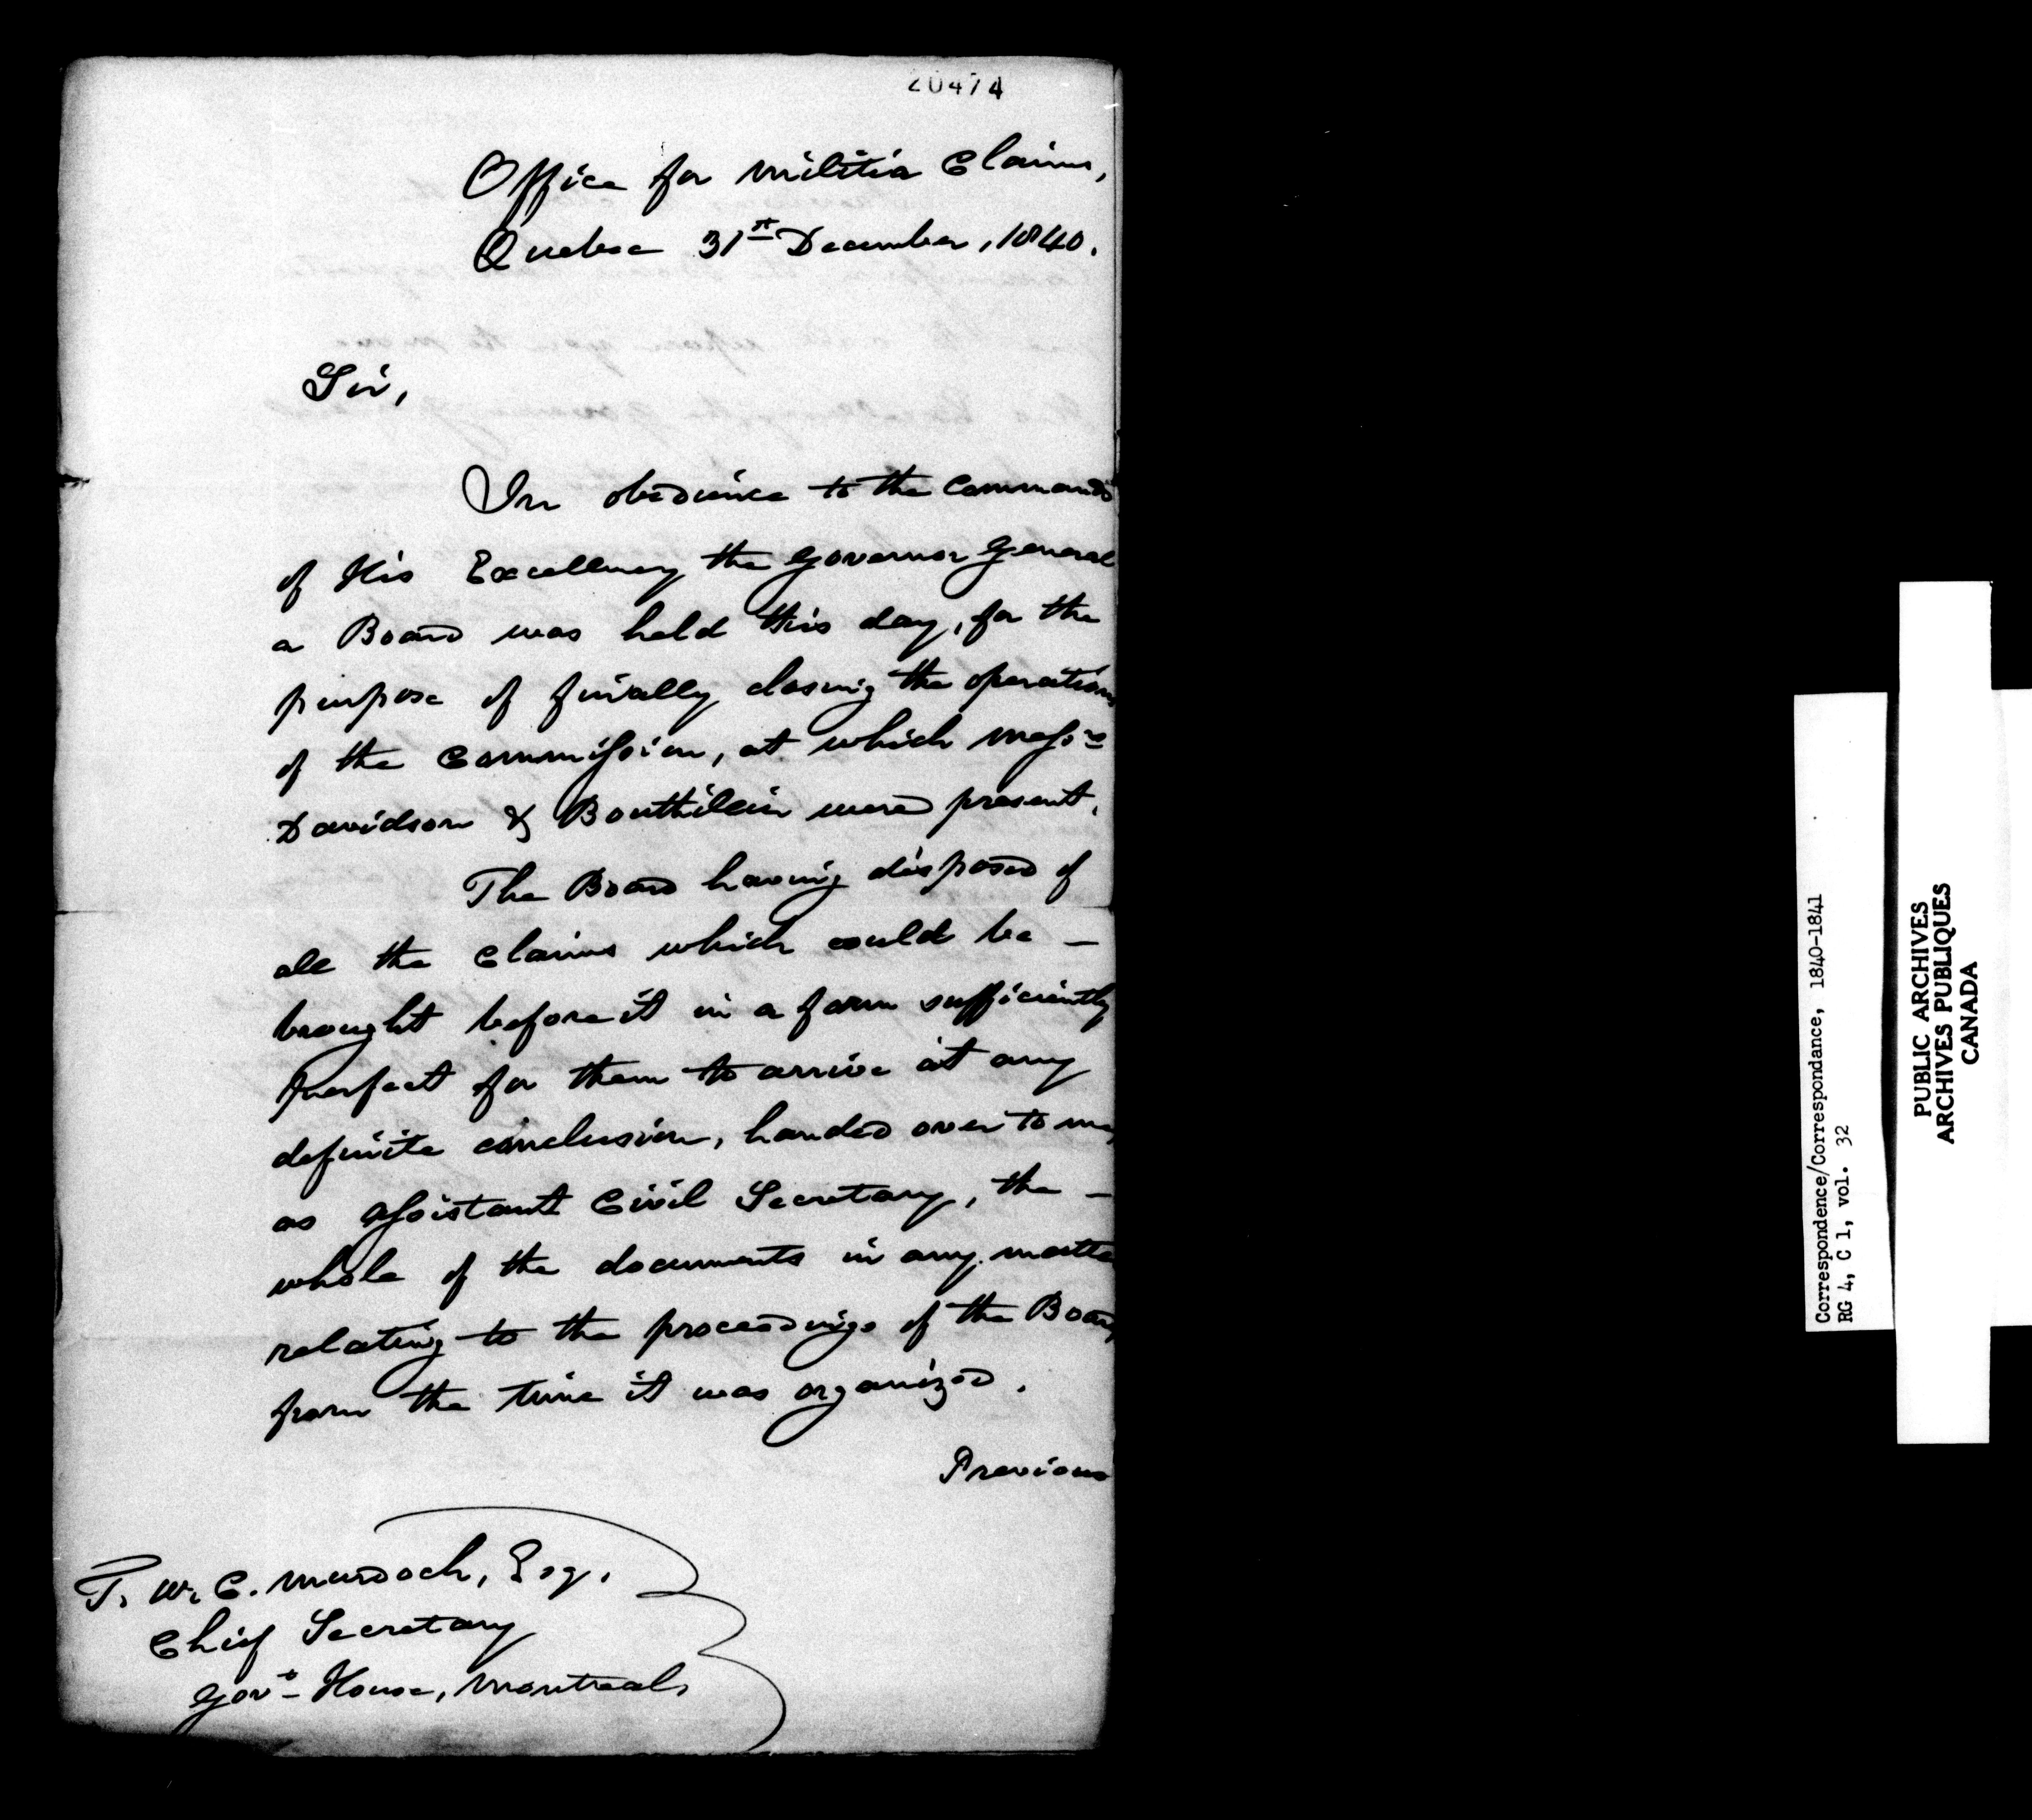 20474
Office for Militia Claims,
Quebec 31st December, 1840.
Sir,
In obedience to the Commands
of His Excellency the Governor General
a Board was held this day, for the
purpose of finally closing the operations
of the Commission, at which Messrs
Davidson & Bouthilier were present.
The Board having disposed of
all the Claims which could be –
brought before it in a form sufficiently
perfect for them to arrive at any
definite conclusion, handed over to me
as Assistant Civil Secretary, the –
whole of the documents in any matter
relating to the proceedings of the Board,
from the time it was organized.
Previous
T. W. C. Murdoch, Esq.
Chief Secretary
Govt House, Montreal,
Correspondence/Correspondance, 1840-1841
RG 4, C 1, vol. 32
PUBLIC ARCHIVES
ARCHIVES PUBLIQUES
CANADA